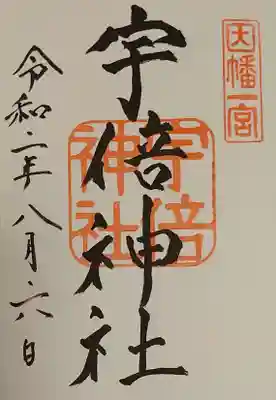 因幡一宮
宇倍神社
宇倍神社
令和二年八月六日